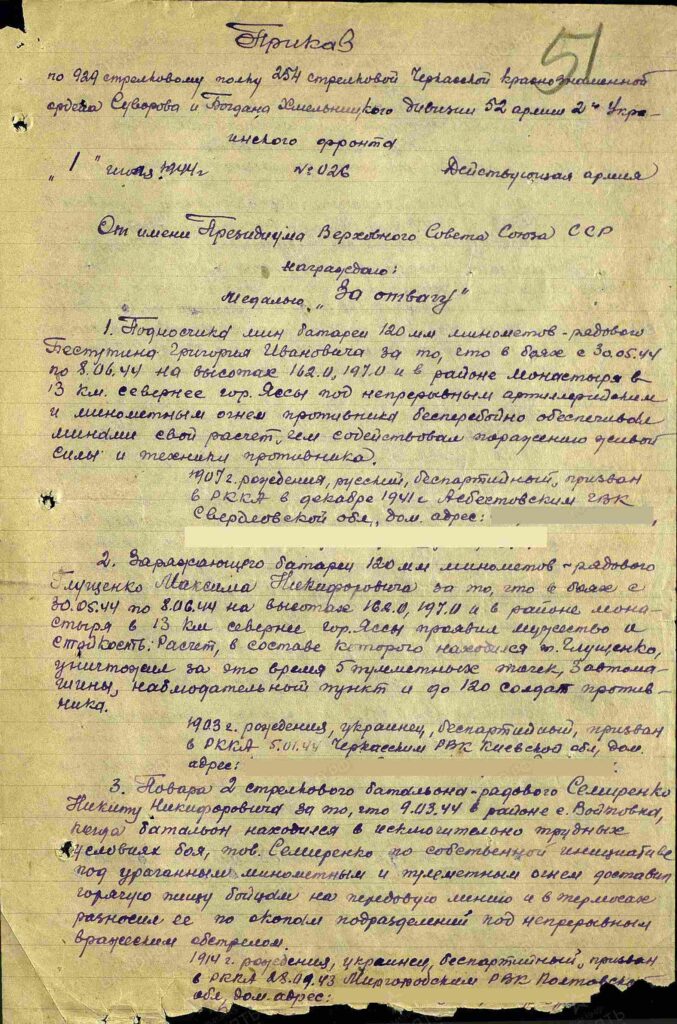 51
Приказ
по 929 стрелковому полку 254 стрелковой Черкасской краснознаменной
ордена Суворова и Богдана Хмельницкого дивизии 52 армии 2го Укра-
инского фронта
"1" июля 1944 г № 026 Действующая армия
От имени Президиума Верховного Совета Союза ССР
награждаю:
медалью „За отвагу"
1. Подносчика мин батареи 120 мм минометов - рядового
Пестугина Григория Ивановича за то, что в боях с 30.05.44
по 8.06.44 на высотах 162.0, 197.0 и в районе монастыря в
13 км. севернее гор. Яссы под непрерывным артиллерийским
и минометным огнем противника бесперебойно обеспечивал
минами свой расчет, чем содействовал поражению живой
силы и техники противника.
1907 г. рождения, русский, беспартийный, призван
в РККА в декабре 1941 г Асбестовским ГВК
Свердловской обл, дом. адрес:
2. Заряжающего батареи 120 мм минометов - рядового
Глущенко Максима Никифоровича за то, что в боях с
30.05.44 по 8.06.44 на высотах 162.0, 197.0 и в районе мона-
стыря в 13 км севернее гор. Яссы проявил мужество и
стойкость. Расчет, в составе которого находился т. Глущенко,
уничтожил за это время 5 пулеметных точек, 3 автома-
шины, наблюдательный пункт и до 120 солдат против-
ника.
1903 г. рождения, украинец, беспартийный, призван
в РККА 5.01.44 Черкасским РВК Киевской обл, дом.
адрес:
3. Повара 2 стрелкового батальона - рядового Семиренко
Никиту Никифоровича за то, что 9.03.44 в районе с.
когда батальон находился в исключительно трудных
условиях боя, тов. Семиренко по собственной инициативе
под ураганным минометным и пулеметным огнем доставил
горячую пищу бойцам на передовую линию и в термосах
разносил ее по окопам подразделений под непрерывным
вражеским обстрелом.
1914 г. рождения, украинец, беспартийный, призван
в РККА 28.09.43 Миргородским РВК Полтавской
обл, дом. адрес: